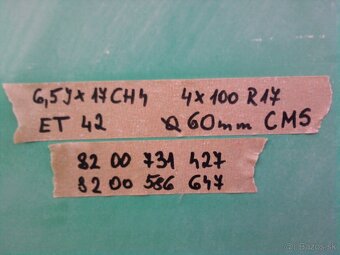 6,5J x 17 CH4 4 x 100 R17
ET 42 Ø 60mm CMS
82 00 731 427
82 00 586 647
© Bazos.sk